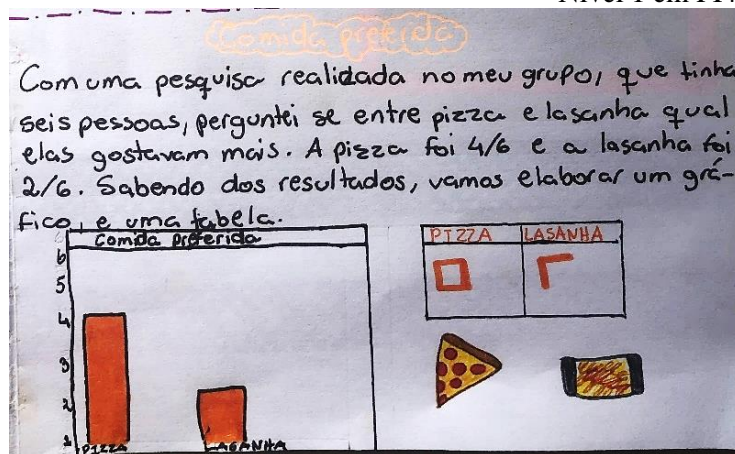 Comida preferida
Com uma pesquisa realizada no meu grupo, que tinha
seis pessoas, perguntei se entre pizza e lasanha qual
elas gostavam mais. A pizza foi 4/6 e a lasanha foi
2/6. Sabendo dos resultados, vamos elaborar um grá-
fico, e uma tabela.
Comida preferida
6
5
4
3
2
1
PIZZA LASANHA
PIZZA LASANHA